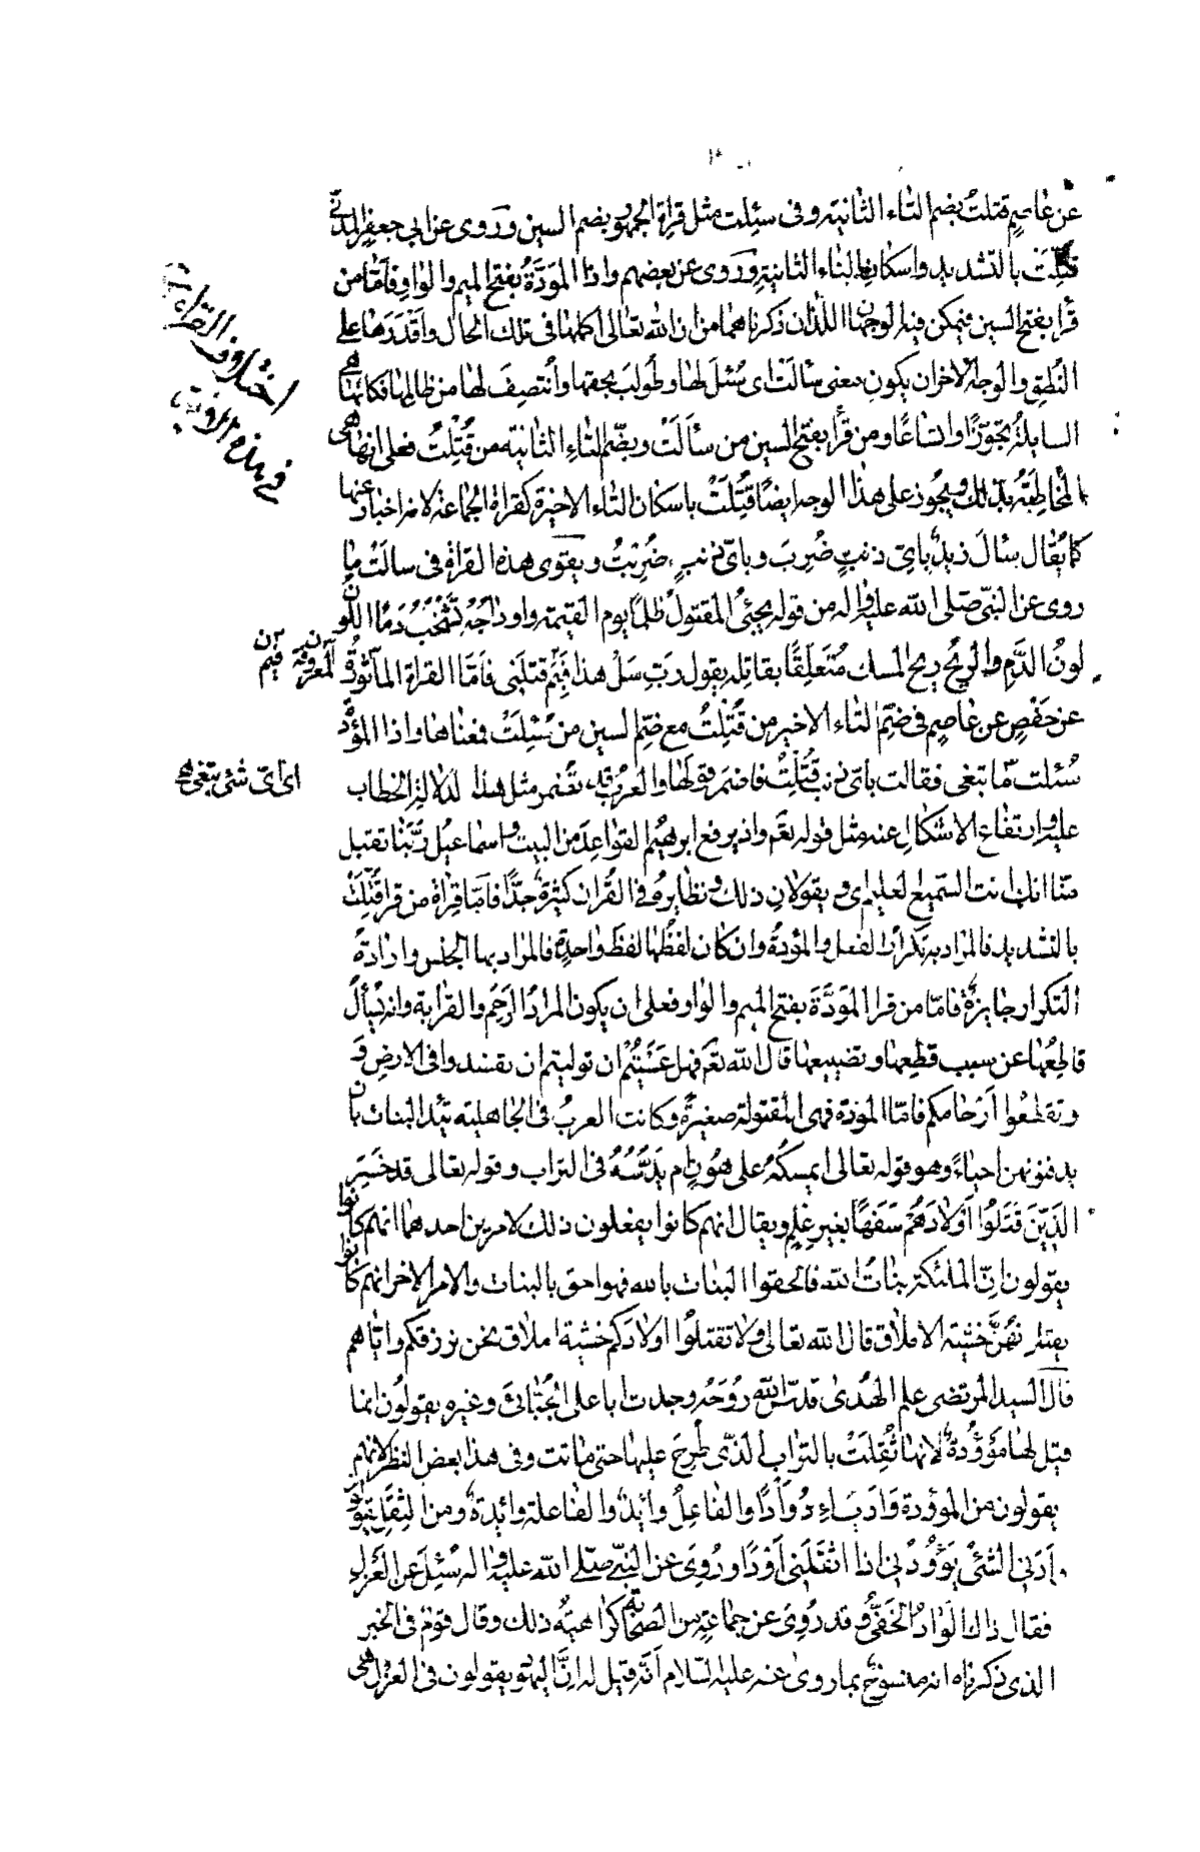 عن عاصم قتلتُ بضم التاء الثانية وفى سئلت مثل قراءة الجمهور بضم السين وروى عن ابى جعفر المدنى
قتّلت بالتشديد واسكان التاء الثانية وروى عن بعضهم واذا الموَدَّةُ بفتح الميم والواو فامّا من
قرأ بفتح السين فيمكن فيه الوجهان اللذان ذكرناهما من ان الله تعالى اكملها فى تلك الحال واقدرها على
النطق والوجه الاخر ان يكون معنى سألَت اى سُئلَ لها وطُولِبَ بحقها وانتُصِفَ لها من ظالمها فكانها هى
السايلة تجوّزًا واتساعًا ومن قرأ بفتح السين من سألَت وبضم التاء الثانية من قُتِلْتُ فعلى انها هى
المخاطِبَةُ بذلك ويجوز على هذا الوجه ايضًا قُتِلَتْ باسكان التاء الاخيرة كقراءة الجماعة لانه اخبار عنها
كما يُقال سأل زيد باىّ ذنبٍ ضُرِبَ وباىّ ذنبٍ ضُرِبْتُ ويقوّى هذه القراءة فى سالَتْ ما
روى عن النبى صلى الله عليه واله من قوله يجئ المقتول ظلمًا يوم القيمة واوداجُه تَشْخُبُ دَمًا اللون
لونُ الدَّمِ والريح ريح المسك مُتَعلِّقًا بقاتله يقول ربّ سَل هذا فِيمَ قتلَنى فامّا القراءة المأثورة
المعروفة فيم
عن حفصٍ عن عاصمٍ فى ضمّ التاء الاخيرة من قُتِلْتُ مع ضمّ السين من سُئلَتْ فمعناها واذا الموؤدة
سُئلت مّا تبغى فقالت باىّ ذنب قُتِلْتُ فاضمر قولها والعرب قد تضمر مثل هذا لدلالة الخطاب
اى اىّ شئ تبتغى
عليه وارتفاع الاشكال عنه مثل قوله تعَم واذ يرفع ابرهيم القواعدَ من البيت واسماعيل ربَّنا تقبل
منّا انك انت السّميع العليم اى ويقولان ذلك ونظايره فى القرآن كثيرة جدًّا فامّا قراءة من قرأ قُتِّلَتْ
بالتشديد فالمراد به تكرار الفعل والموؤدة وان كان لفظها لفظ واحدةٍ فالمراد بها الجنس وارادة
التكرار جايزة فامّا من قرأ المَوَدَّةَ بفتح الميم والواو فعلى ان يكون المراد الرَحِم والقرابة وانه يُسأل
قاطعُها عن سبب قطيعها وتضييعها قال الله تعَم فهل عَسَيْتُم ان توليتم ان تفسدوا فى الارض وَ
وتقطعوا اَرْحامكم فامّا الموؤدة فهى المقتولة صغيرةً وكانت العربُ فى الجاهلية تئد البنات بان
يدفنونهن احياءً وهو قوله تعالى ايمسكُهُ على هُونٍ ام يدُسُّهُ فى التراب وقوله تعالى قد خَسِرَ
الذينَ قَتَلُوا اَوْلادَهُمْ سَفَهًا بغير علمٍ ويقال انهم كانوا يفعلون ذلك لامرين احدهما انهم كانوا
يقولون انّ الملئكة بناتُ الله فالحقوا البنات بالله فهو احق بالبنات والامر الاخر انهم كانوا
يقتلونَهُنَّ خشية الاملاق قال الله تعالى ولا تقتلُوا اولادكم خشية املاق نحن نرزقكم واياهم
قال السيد المرتضى علم الهُدى قدّس الله رُوحَه وجدت ابا على الجُبّائىَّ وغيره يقولون انما
قيل لها مَؤوُدة لانها ثُقِّلَتْ بالتراب الذى طُرِحَ عليها حتى ماتت وفى هذا بعض النظر لانهم
يقولون من الموؤدة وَاَد يَئِد وَأْدًا والفاعِلُ وائِدٌ والفاعلة وائِدةٌ ومن الثقل يقولون
اَدَنى الشئ يَؤوُدُنى اذا اثقلَنى اَوْدًا ورُوِىَ عن النبى صلى الله عليه واله سُئِلَ عن العَزل
فقال ذاك الوَأدُ الخَفىُّ وقد رُوِىَ عن جماعةٍ من الصحابة كراهيةُ ذلك وقال قومٌ فى الخبر
الذى ذكرناه انه منسوخٌ بما روى عنه عليه السلام انّه قيل له اِنَّ اليهود يقولون فى العزل هى
اختلاف القراءة
فى هذه الاية